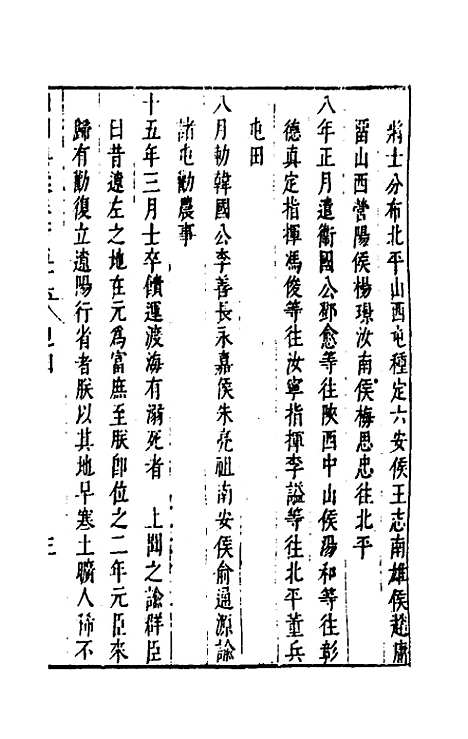 將士分布北平山西屯種定六安侯王志南雄侯趙庸
留山西營陽侯楊璟汝南侯梅思忠往北平
八年正月遣衛國公鄧愈等往陝西中山侯湯和等往彰
德真定指揮馮俊等往汝寧指揮李謚等往北平董兵
屯田
八月勑韓國公李善長永嘉侯朱亮祖南安侯俞通源諭
諸屯勸農事
十五年三月士卒饋運渡海有溺死者　上聞之諭群臣
曰昔遼左之地在元為富庶至朕卽位之二年元臣來
歸有勸復立遼陽行省者朕以其地早寒土曠人稀不